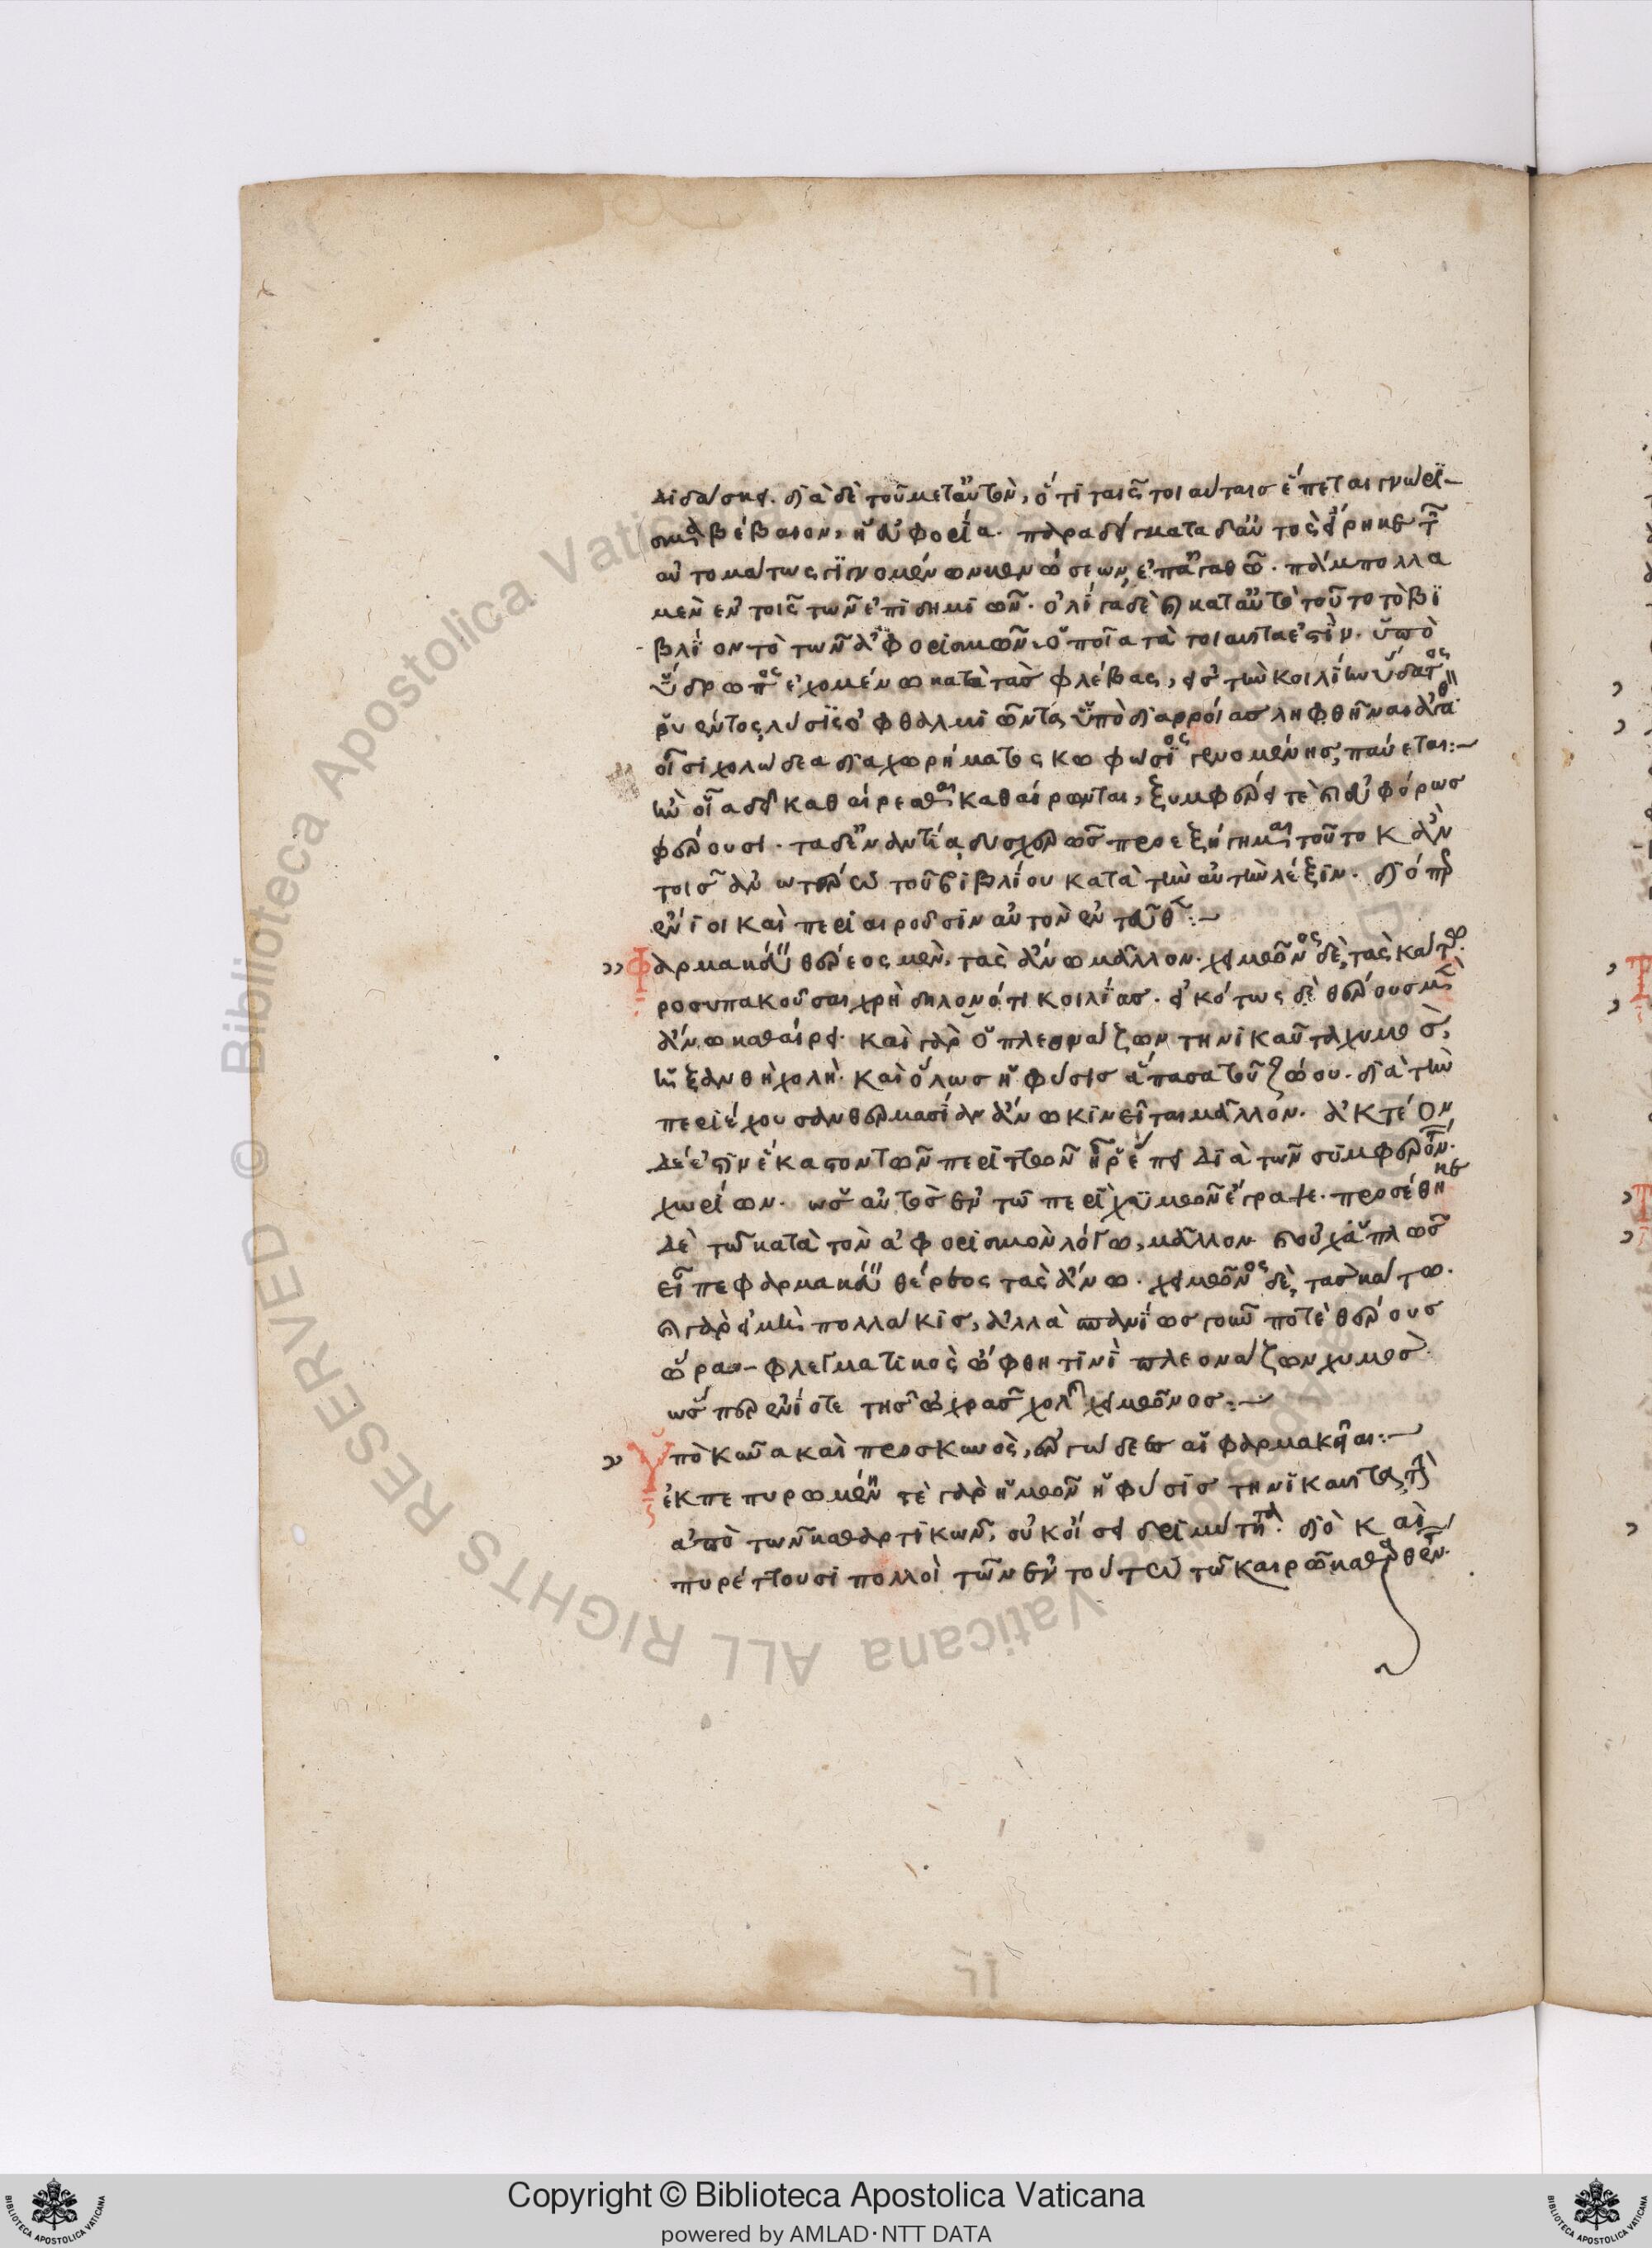 διδάσκει. διὰ δὲ τοῦ μετ' αὐτὸν, ὅτι ταῖς τοιαύταις ἕπεται γνώρι-
σμα βέβαιον, ἡ εὐφορία. παραδείγματα δ' αὐτὸς εἴρηκε τῶν
αὐτομάτως γινομένων κενώσεων, ἐπ' ἀγαθῶ. πάμπολλα
μὲν ἐν τοῖς τῶν ἐπιδημιῶν. ὀλίγα δὲ καὶ κατ' αὐτὸ τοῦτο τὸ βι
βλίον τὸ τῶν ἀφορισμῶν. ὁποῖα τὰ τοιαῦτα ἐστίν. ὑπὸ
ὕδρωπος ἐχομένω κατὰ τὰς φλέβας, εἰς τὴν κοιλίην ὕδατος
ῥυέντος, λύσις· ὀφθαλμιῶντα ὑπὸ διαρροίας ληφθῆναι ἀγαθὸν
οἷσι χολώδεα διαχωρήματα κωφώσιος γενομένης, παύεται:
ἢν οἷα δεῖ καθαίρεσθαι καθαίρωνται, ξυμφέρει τὲ καὶ εὐφόρως
φέρουσι. τὰ δ' ἐναντία, δυσχερῶς προεξήγημαι τοῦτο κἀν
τοῖς ἀνωτέρω τοῦ βιβλίου κατὰ τὴν αὐτὴν λέξιν. διόπερ
ἔνιοι καὶ περιαιροῦσιν αὐτὸν ἐνταῦθα:
Φαρμακεύειν θέρεος μὲν, τὰς ἄνω μᾶλλον. χειμῶνος δὲ, τὰς κάτω.
προσυπακοῦσαι χρὴ δηλονότι κοιλίας. εἰκότως δὲ θέρους μὲν
ἄνω καθαίρει. καὶ γὰρ ὁ πλεονάζων τηνικαῦτα χυμὸς,
ἡ ξανθὴ χολὴ. καὶ ὅλως ἡ φύσις ἅπασα τοῦ ζώου. διὰ τὴν
περιέχουσαν θερμασίαν ἄνω κινεῖται μᾶλλον. ἀκτέον
δέ ἐστιν ἕκαστον τῶν περιττῶν ᾗ ῥέπει διὰ τῶν συμφερόντων
χωρίων. ὡς αὐτὸς ἐν τῶ περὶ χυμῶν ἔγραψε. προσέθηκε
δὲ τῶ κατὰ τὸν ἀφορισμὸν λόγω, μᾶλλον καὶ οὐχ ἁπλῶς
εἶπε φαρμακεύειν θέρεος τὰς ἄνω. χειμῶνος δὲ, τὰς κάτω.
καὶ γὰρ εἰ μὴ πολλάκις, ἀλλὰ σπανίως γοῦν ποτὲ θέρους
ὥρα φλεγματικὸς ὤφθη τινὶ πλεονάζων χυμὸς.
ὥσπερ ἐνίοτε τῆς ὠχρᾶς χολῆς χειμῶνος:
Ὑπὸ κύνα καὶ πρὸ κυνὸς, ἐργώδεες αἱ φαρμακεῖαι:
ἐκπεπυρωμένη τὲ γὰρ ἡμῶν ἡ φύσις τηνικαῦτα, τὴν
ἀπὸ τῶν καθαρτικῶν, οὐκ οἴσει δριμύτητα. διὸ καὶ
πυρέττουσι πολλοὶ τῶν ἐν τούτω τῶ καιρῶ καθαρθέντων.